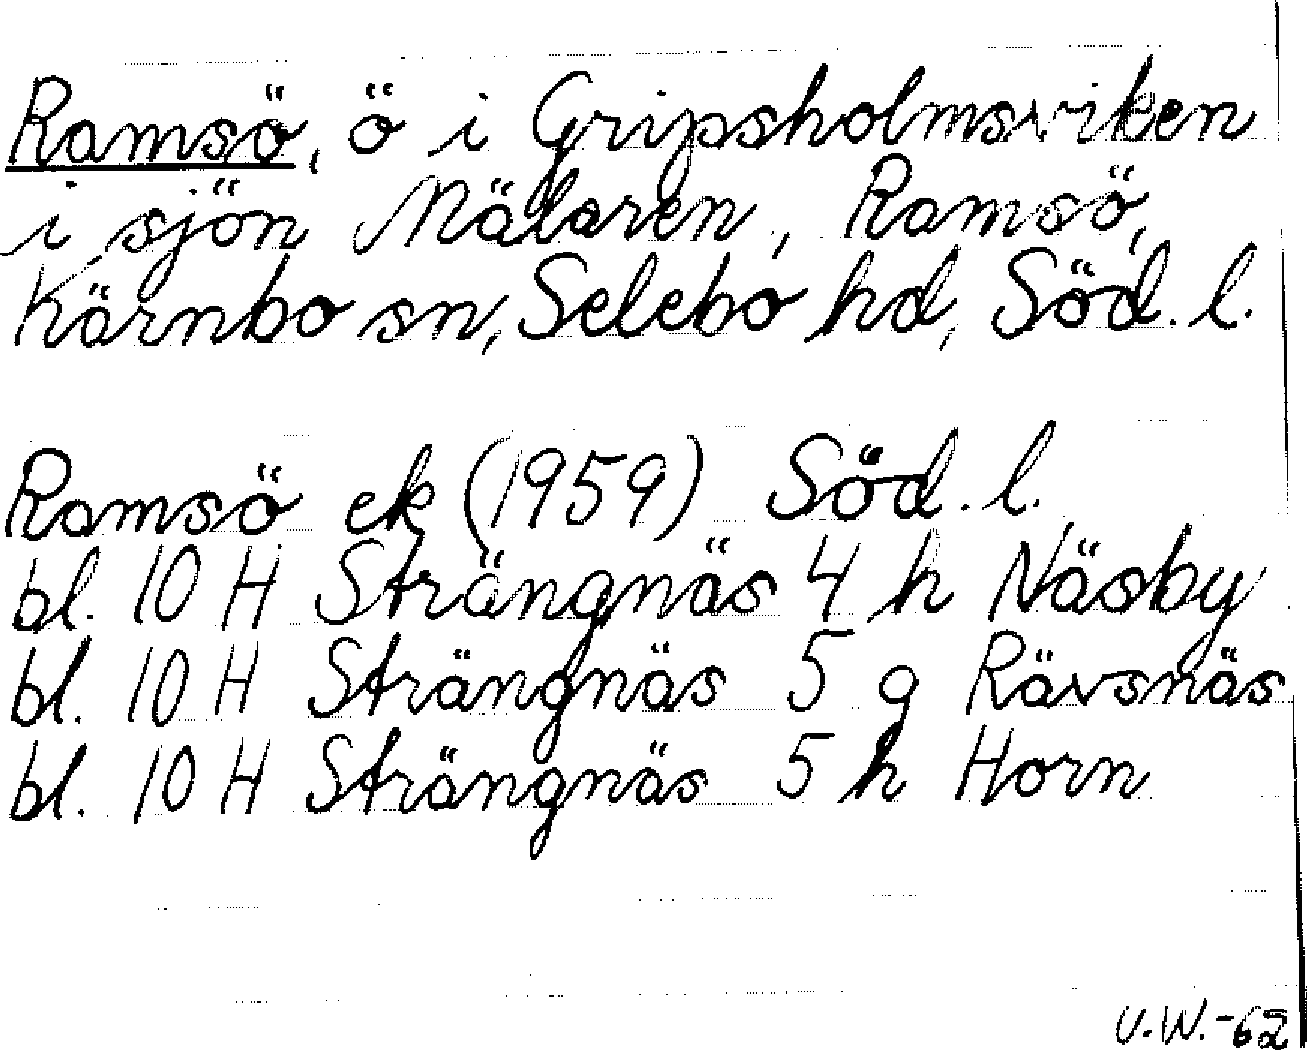 Ramsö, ö i Gripsholmsviken
i sjön Mälaren, Ramsö,
Kärnbo sn, Selebo hd, Söd. l.
Ramsö ek (1959) Söd. l.
bl. 10 H Strängnäs 4 h Näsby
bl. 10 H Strängnäs 5 g Rävsnäs
bl. 10 H Strängnäs 5 h Horn
U.W.-62